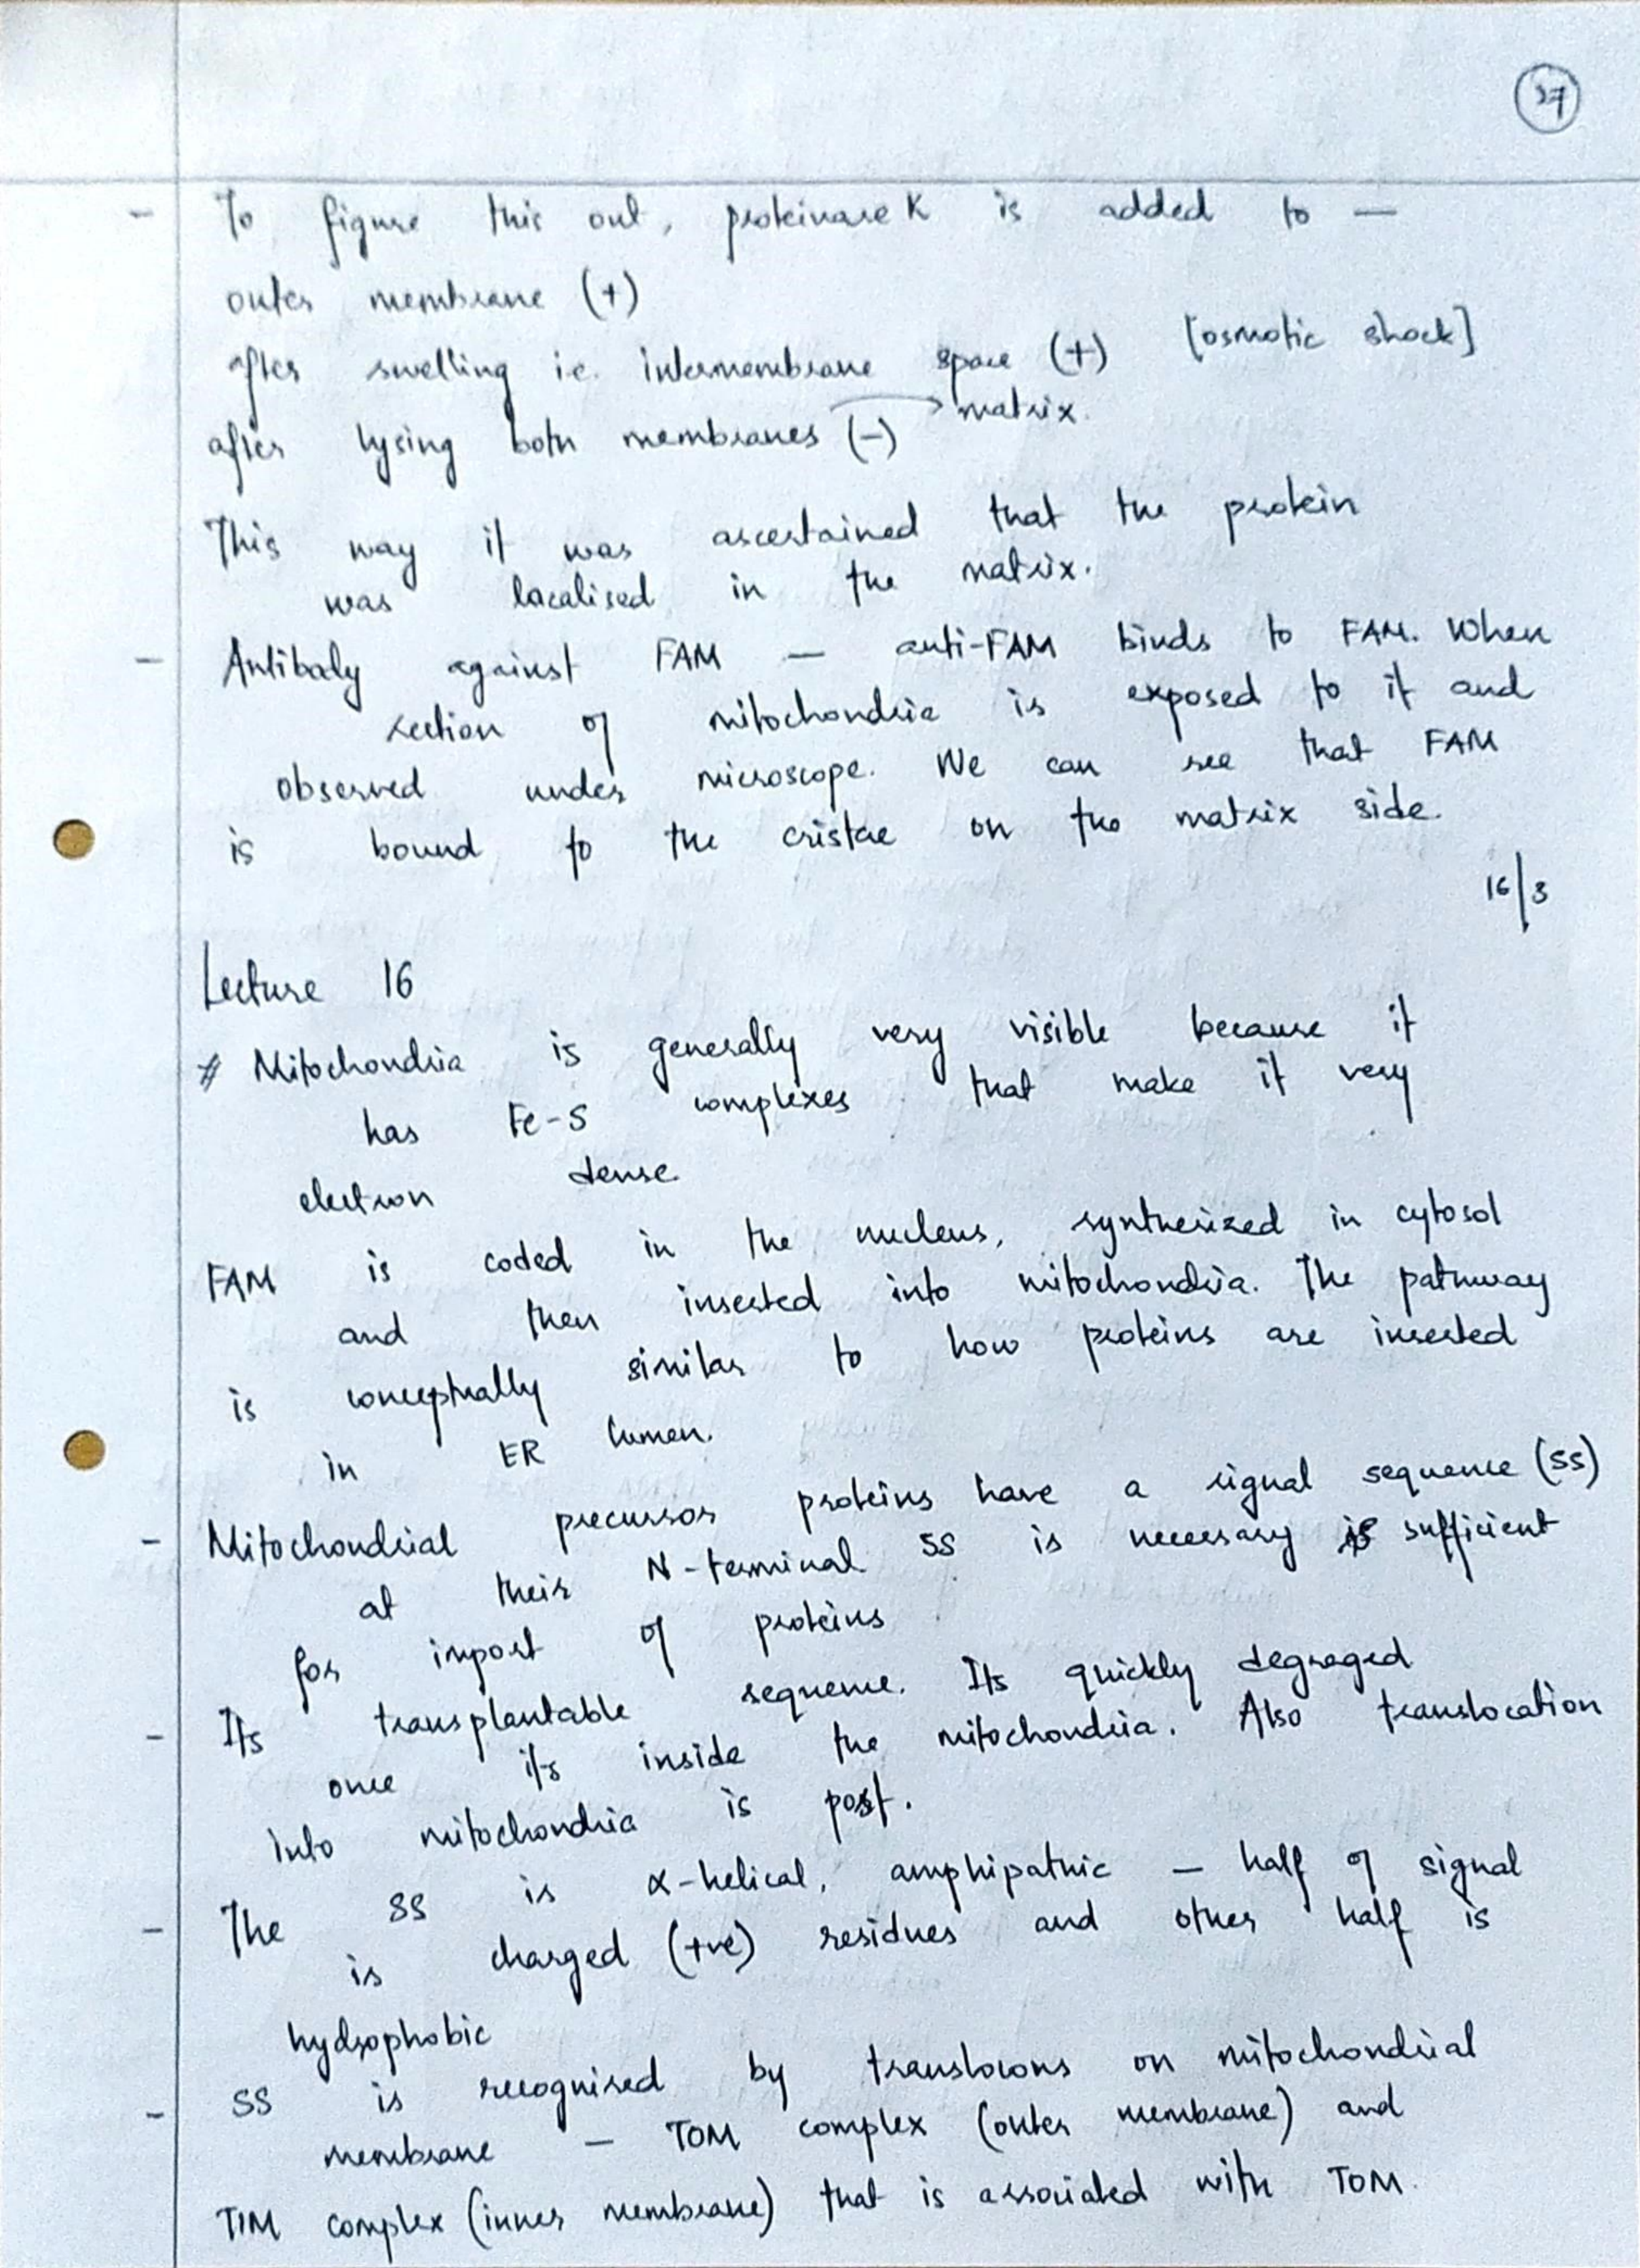 37
- To figure this out, proteinase K is added to —
outer membrane (+)
after swelling i.e. intermembrane space (+) [osmotic shock]
after lysing both membranes (-) → matrix.
This way it was ascertained that the protein
was localised in the matrix.
- Antibody against FAM — anti-FAM binds to FAM. When
section of mitochondria is exposed to it and
observed under microscope. We can see that FAM
is bound to the cristae on the matrix side.
16/3
Lecture 16
# Mitochondria is generally very visible because it
has Fe-S complexes that make it very
electron dense
FAM is coded in the nucleus, synthesized in cytosol
and then inserted into mitochondria. The pathway
is conceptually similar to how proteins are inserted
in ER lumen.
- Mitochondrial precursor proteins have a signal sequence (SS)
at their N-terminal SS is necessary & sufficient
for import of proteins
- Its transplantable sequence. Its quickly degraged
once its inside the mitochondria. Also translocation
into mitochondria is post.
- The SS is α-helical, amphipathic — half of signal
is charged (+ve) residues and other half is
hydrophobic
- SS is recognised by translocons on mitochondrial
membrane — TOM complex (outer membrane) and
TIM complex (inner membrane) that is associated with TOM.